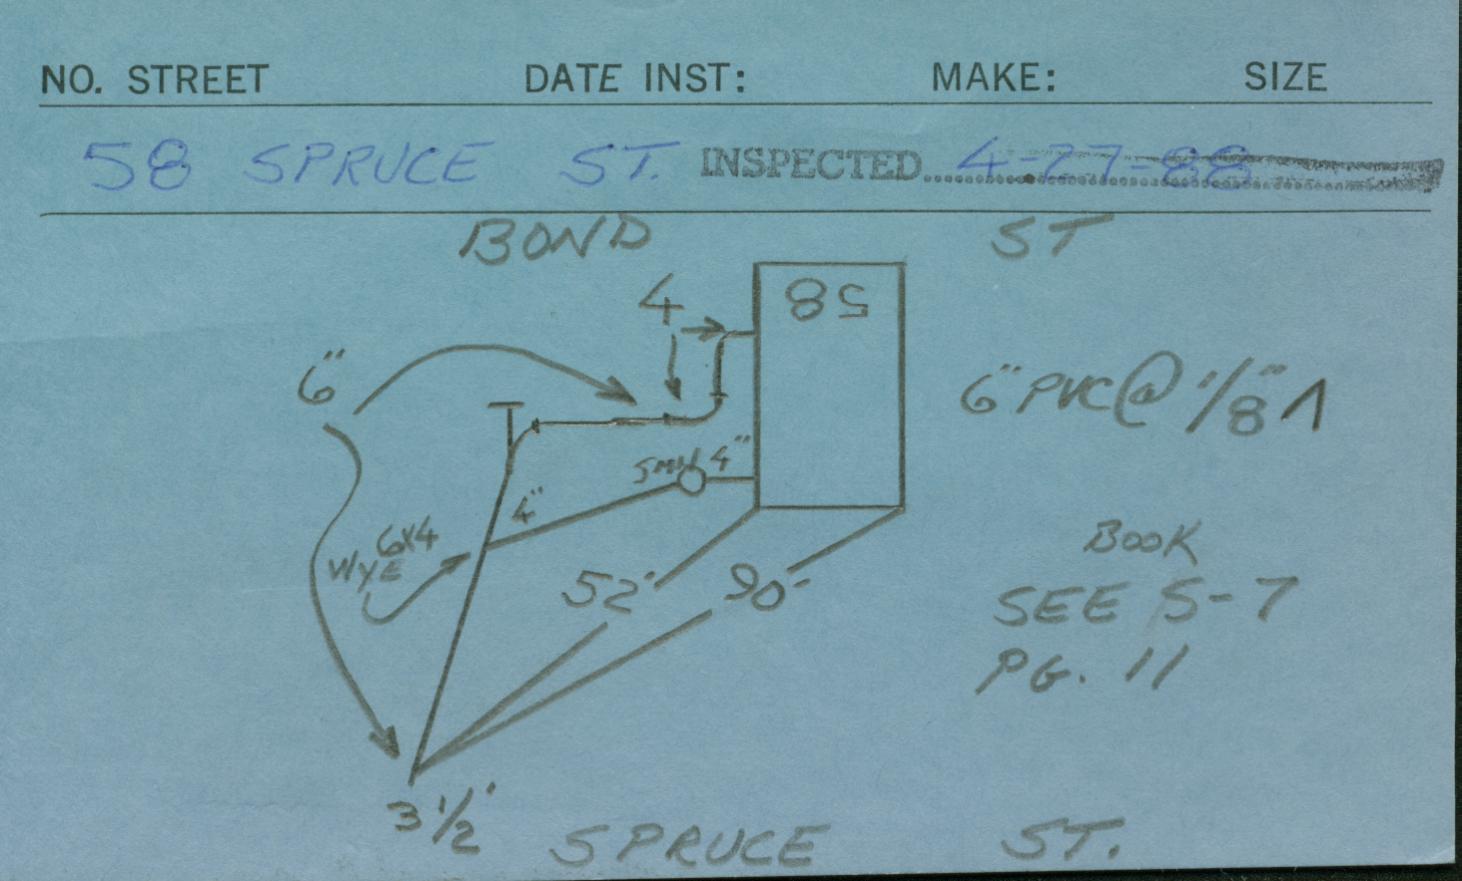 NO. STREET DATE INST: MAKE: SIZE
58 SPRUCE ST. INSPECTED 4-27-88
BOND ST
58
4
6"
6" PVC @ 1/8" Λ
SMH 4"
4"
6X4
WYE
BOOK
52' 90'
SEE S-7
PG. 11
3 1/2'
SPRUCE ST.